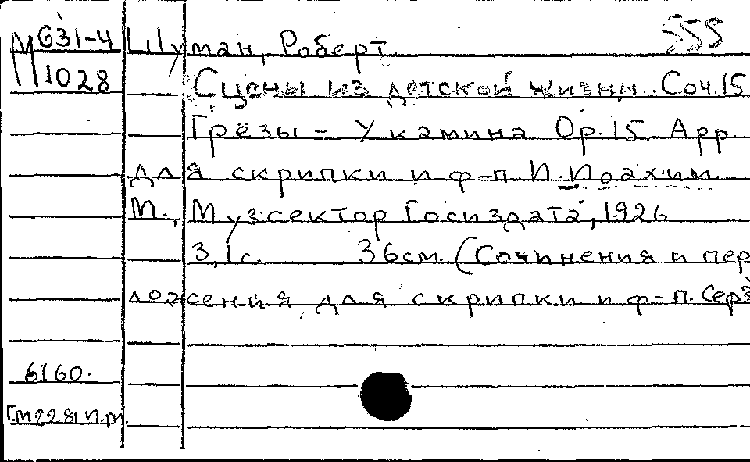 М G31-4 Шуман, Роберт. 555
1028 Сцены из детской жизни. Соч.15
Грёзы - У камина Op.15 Арр.
для скрипки и ф-п И. Иоахим
М., Музсектор Госиздата, 1926
3,1с. 36см. (Сочинения и пер
ложения для скрипки и ф-п. Сер
6160.
Гм 2281 И.М